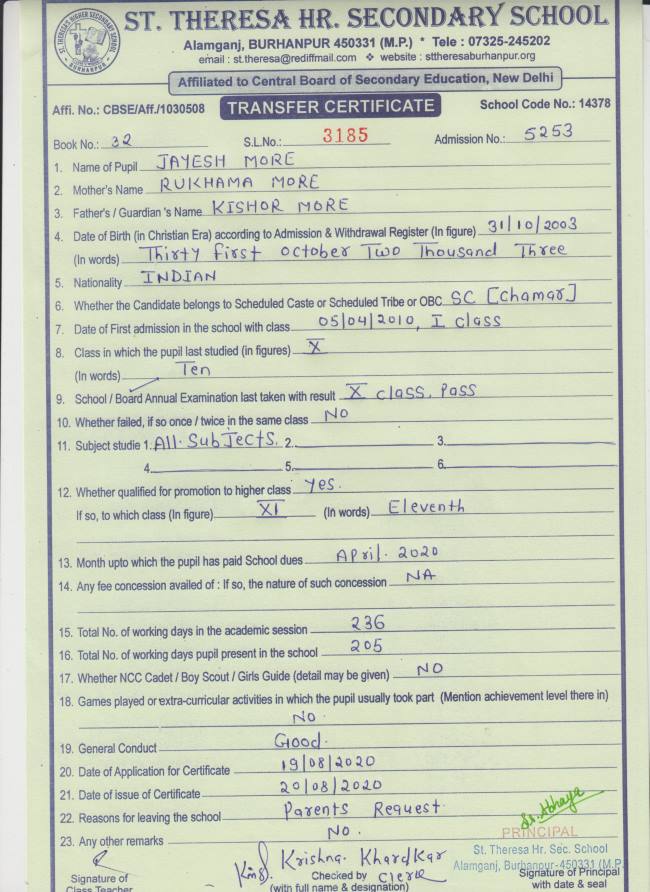 ST. THERESA HR. SECONDARY SCHOOL
Alamganj, BURHANPUR 450331 (M.P.) * Tele : 07325-245202
email : st.theresa@rediffmail.com ❖ website : sttheresaburhanpur.org
Affiliated to Central Board of Secondary Education, New Delhi
Affi. No.: CBSE/Aff./1030508 TRANSFER CERTIFICATE School Code No.: 14378
Book No.: 32 S.L.No.: 3185 Admission No.: 5253
1. Name of Pupil JAYESH MORE
2. Mother's Name RUKHAMA MORE
3. Father's / Guardian 's Name KISHOR MORE
4. Date of Birth (in Christian Era) according to Admission & Withdrawal Register (In figure) 31/10/2003
(In words) Thirty first October Two Thousand Three
5. Nationality INDIAN
6. Whether the Candidate belongs to Scheduled Caste or Scheduled Tribe or OBC SC [Chamar]
7. Date of First admission in the school with class 05/04/2010, I class
8. Class in which the pupil last studied (in figures) X
(In words) Ten
9. School / Board Annual Examination last taken with result X class, Pass
10. Whether failed, if so once / twice in the same class NO
11. Subject studie 1. All Subjects. 2. 3.
4. 5. 6.
12. Whether qualified for promotion to higher class Yes.
If so, to which class (In figure) XI (In words) Eleventh
13. Month upto which the pupil has paid School dues April. 2020
14. Any fee concession availed of : If so, the nature of such concession NA
15. Total No. of working days in the academic session 236
16. Total No. of working days pupil present in the school 205
17. Whether NCC Cadet / Boy Scout / Girls Guide (detail may be given) NO
18. Games played or extra-curricular activities in which the pupil usually took part (Mention achievement level there in)
NO
19. General Conduct Good.
20. Date of Application for Certificate 19/08/2020
21. Date of issue of Certificate 20/08/2020
22. Reasons for leaving the school Parents Request
23. Any other remarks NO.
PRINCIPAL
St. Theresa Hr. Sec. School
Alamganj, Burhanpur-450331 (M.P.)
Krishna Khardkar
Signature of Checked by Clerk Signature of Principal
Class Teacher (with full name & designation) with date & seal